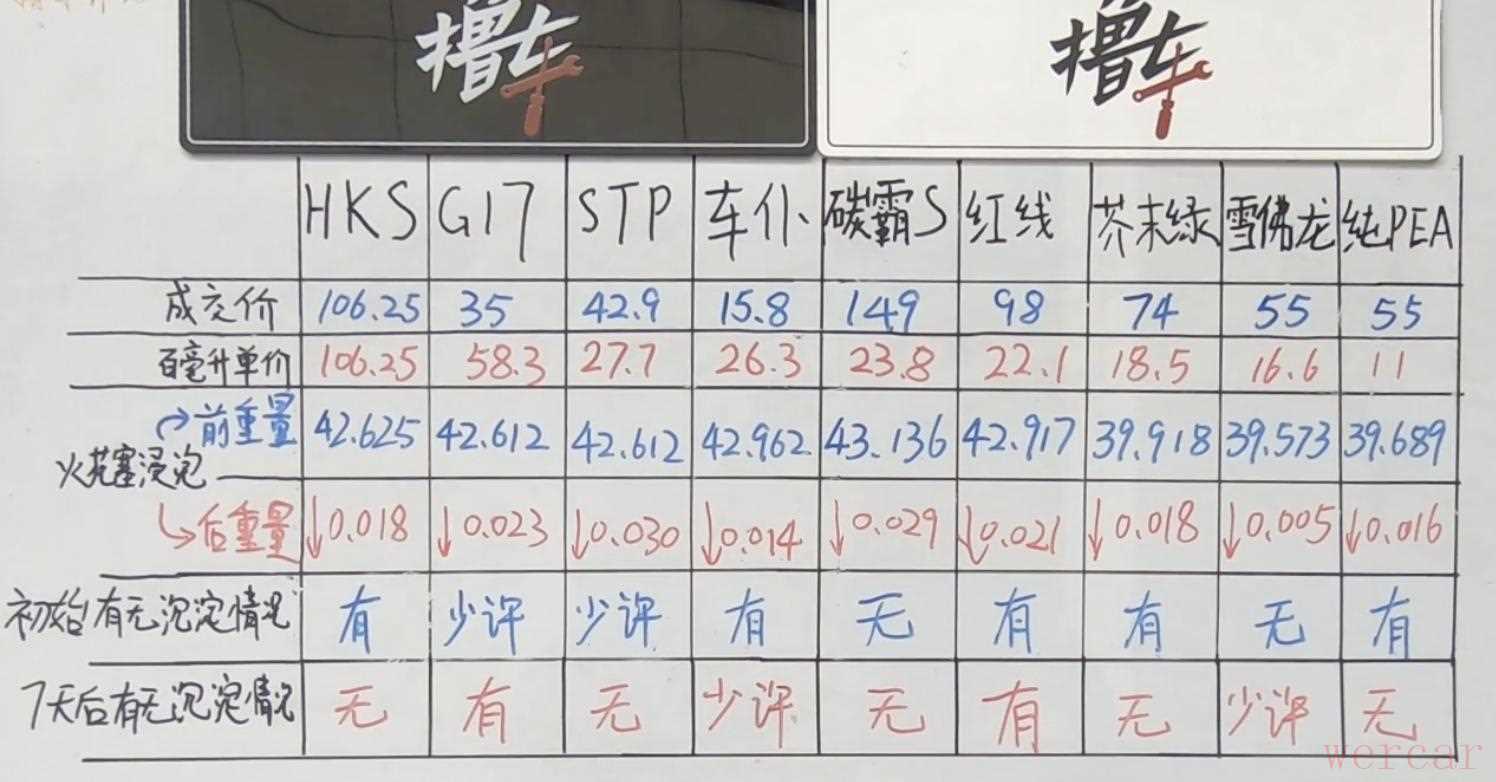 撸车 撸车
HKS G17 STP 车仆 碳霸S 红线 芥末绿 雪佛龙 纯PEA
成交价 106.25 35 42.9 15.8 149 98 74 55 55
百毫升单价 106.25 58.3 27.7 26.3 23.8 22.1 18.5 16.6 11
前重量 42.625 42.612 42.612 42.962 43.136 42.917 39.918 39.573 39.689
火花塞浸泡
后重量 ↓0.018 ↓0.023 ↓0.030 ↓0.014 ↓0.029 ↓0.021 ↓0.018 ↓0.005 ↓0.016
初始有无沉淀情况 有 少许 少许 有 无 有 有 无 有
7天后有无沉淀情况 无 有 无 少许 无 有 无 少许 无
wercar